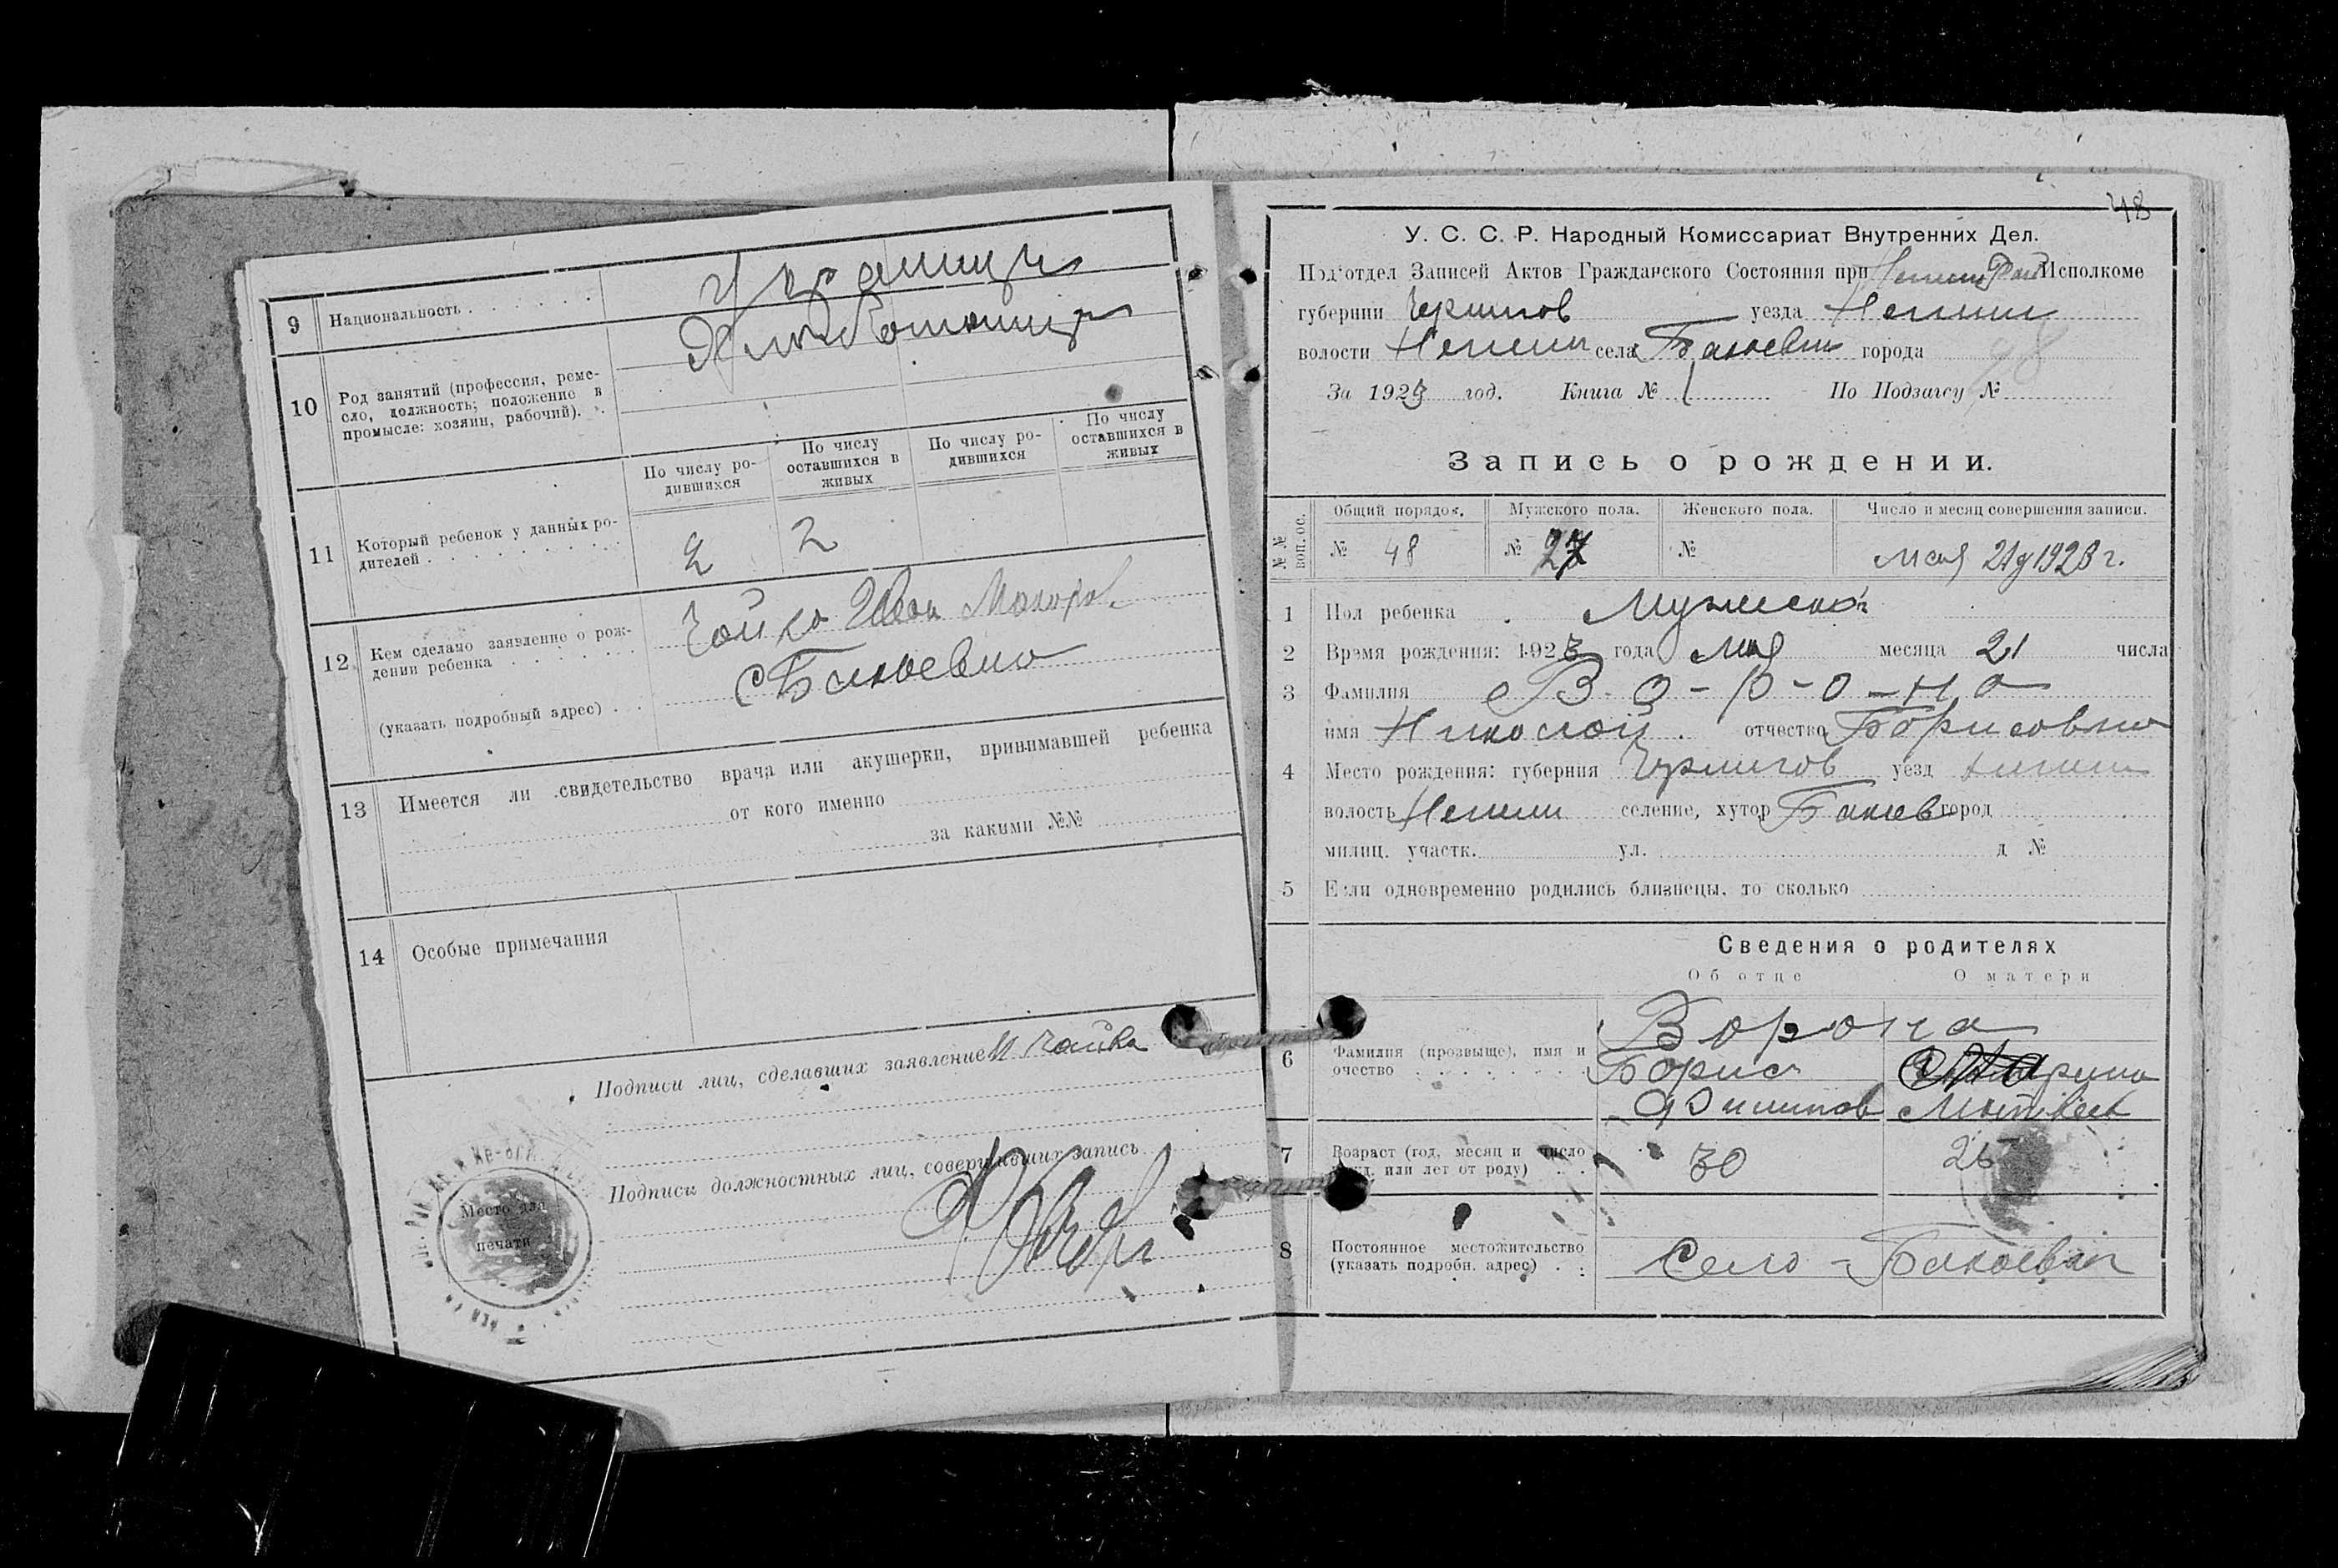 9 Национальность . . . . . . . Украинцы
10 Род занятий (профессия, реме-
сло, должность; положение в
промысле: хозяин, рабочий). . .
По числу ро-
дившихся
По числу
оставшихся в
живых
По числу ро-
дившихся
По числу
оставшихся в
живых
11 Который ребенок у данных ро-
дителей . . . . . . . . . 2 2
12 Кем сделано заявление о рож-
дении ребенка . . . . . . . Чайка Иван
(указать подробный адрес) . . с Бакаевка
13 Имеется ли свидетельство врача или акушерки, принимавшей ребенка
от кого именно
за какими №№
14 Особые примечания
Подписи лиц, сделавших заявление И Чайка
Подписи должностных лиц, совершивших запись
Место для
печати
48
У. С. С. Р. Народный Комиссариат Внутренних Дел.
Под'отдел Записей Актов Гражданского Состояния при Исполкоме
губернии Чернигов уезда Нежин
волости Нежин села Бакаевки города
За 1923 год. Книга № 1 По Подзагсу №
48
Запись о рождении.
№№ воп.ос.
Общий порядок. Мужского пола. Женского пола. Число и месяц совершения записи.
№ 48 № 27 № мая 21д 1923 г.
1 Пол ребенка . Мужской
2 Время рождения: 1923 года мая месяца 21 числа
3 Фамилия В-о-р-о-на
имя Николай. отчество Борисовна
4 Место рождения: губерния Чернигов уезд Нежин
волость Нежин селение, хутор Бакаев город
милиц. участк. ул. д №
5 Если одновременно родились близнецы, то сколько
Сведения о родителях
Об отце О матери
6 Фамилия (прозвыще), имя и
очество . . . . . . . .
Ворона
Борис
Филипов Матвеев
7 Возраст (год, месяц и число
рожд. или лет от роду) . . 30 26
8 Постоянное местожительство
(указать подробн. адрес) . . Село - Бакаевка